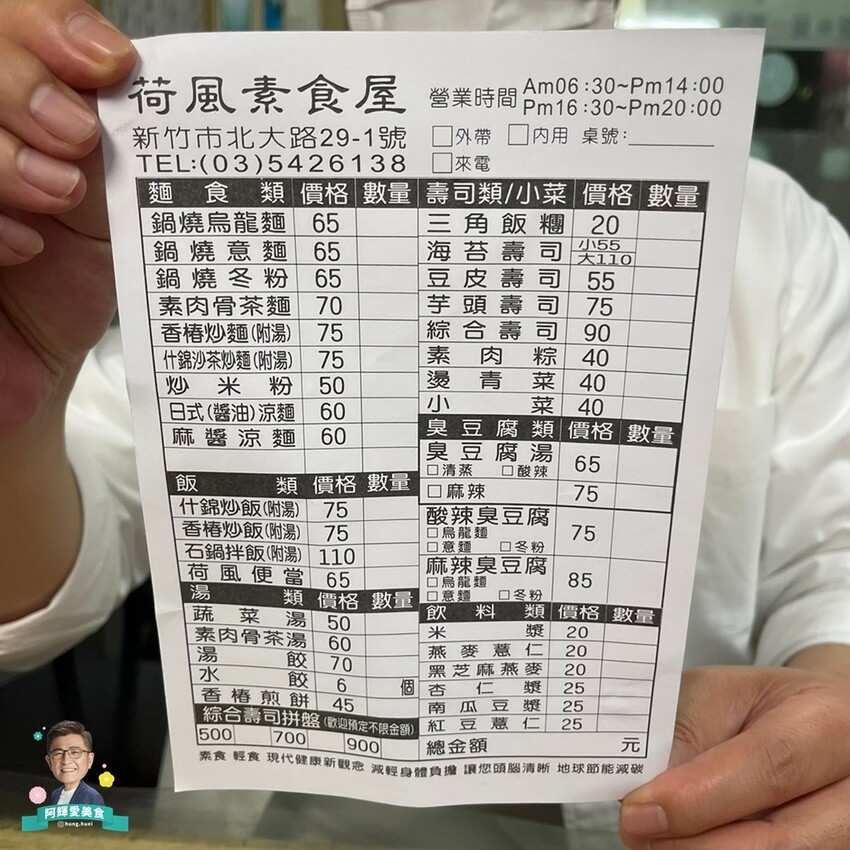 荷風素食屋
新竹市北大路29-1號
TEL:(03)5426138
營業時間 Am06:30~Pm14:00
Pm16:30~Pm20:00
□外帶 □內用 桌號:
□來電
麵食類 價格 數量
鍋燒烏龍麵 65
鍋燒意麵 65
鍋燒冬粉 65
素肉骨茶麵 70
香椿炒麵(附湯) 75
什錦沙茶炒麵(附湯) 75
炒米粉 50
日式(醬油)涼麵 60
麻醬涼麵 60
飯類 價格 數量
什錦炒飯(附湯) 75
香椿炒飯(附湯) 75
石鍋拌飯(附湯) 110
荷風便當 65
湯類 價格 數量
蔬菜湯 50
素肉骨茶湯 60
湯餃 70
水餃 6 個
香椿煎餅 45
綜合壽司拼盤(歡迎預定不限金額)
500 700 900
壽司類/小菜 價格 數量
三角飯糰 20
海苔壽司 小55 大110
豆皮壽司 55
芋頭壽司 75
綜合壽司 90
素肉粽 40
燙青菜 40
小菜 40
臭豆腐類 價格 數量
臭豆腐湯 65
□清蒸 □酸辣
□麻辣 75
酸辣臭豆腐 75
□烏龍麵
□意麵 □冬粉
麻辣臭豆腐 85
□烏龍麵
□意麵 □冬粉
飲料類 價格 數量
米漿 20
燕麥薏仁 20
黑芝麻燕麥 20
杏仁漿 25
南瓜豆漿 25
紅豆薏仁 25
總金額 元
素食 輕食 現代健康新觀念 減輕身體負擔 讓您頭腦清晰 地球節能減碳
阿輝愛美食
@hung.huei